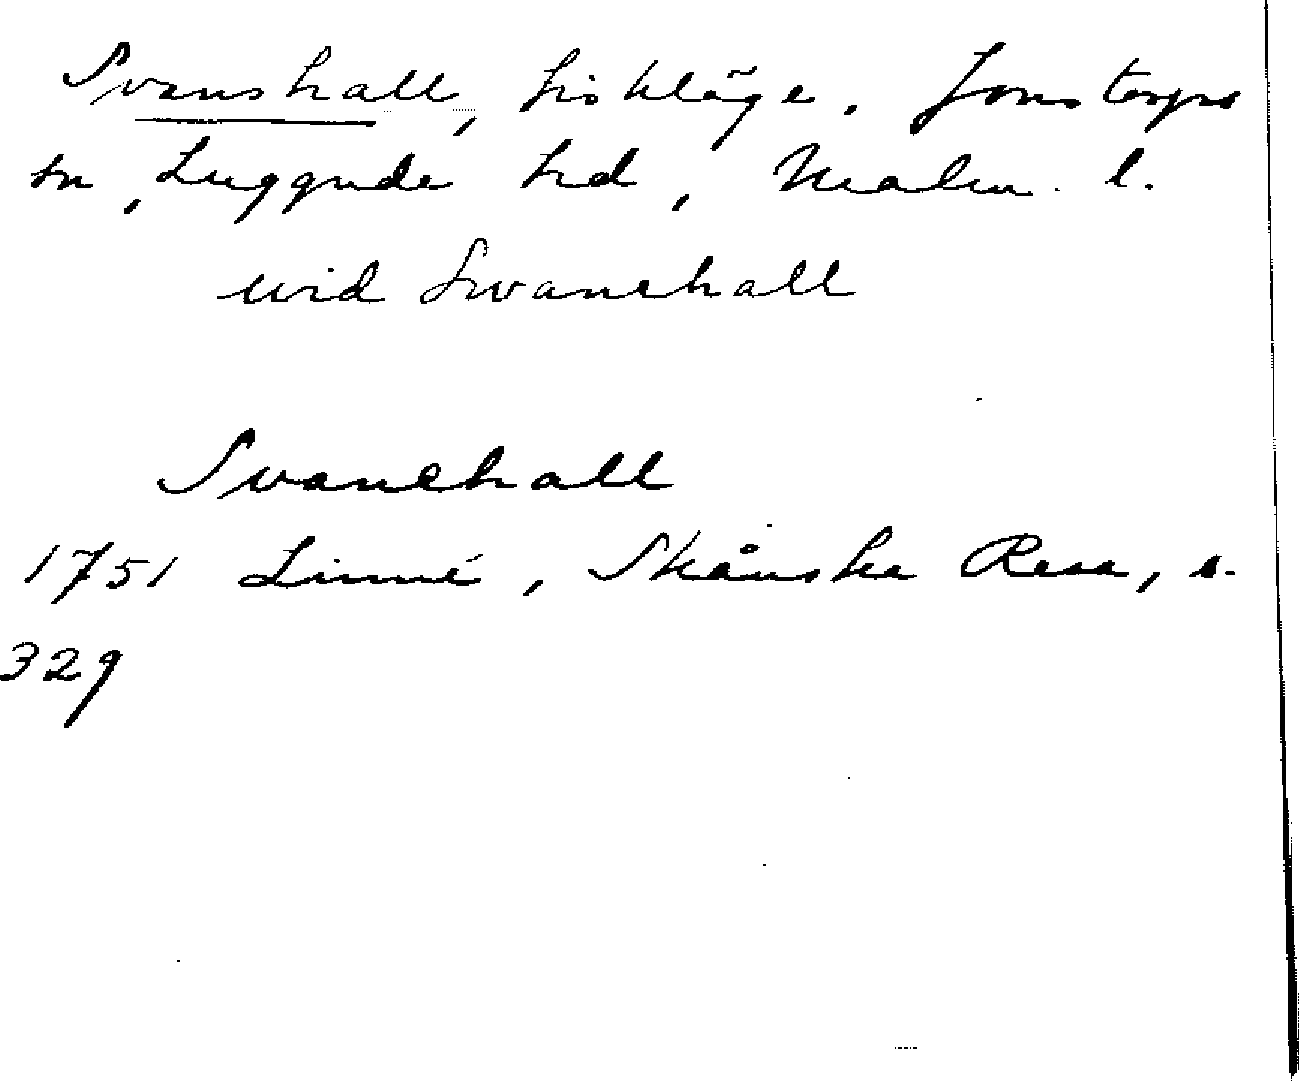 Svanshall, fiskläge. Jonstorps
sn, Luggude hd, Malm. l.
wid Swanehall
Svanehall
1751 Linné, Skånska Resa, s.
329